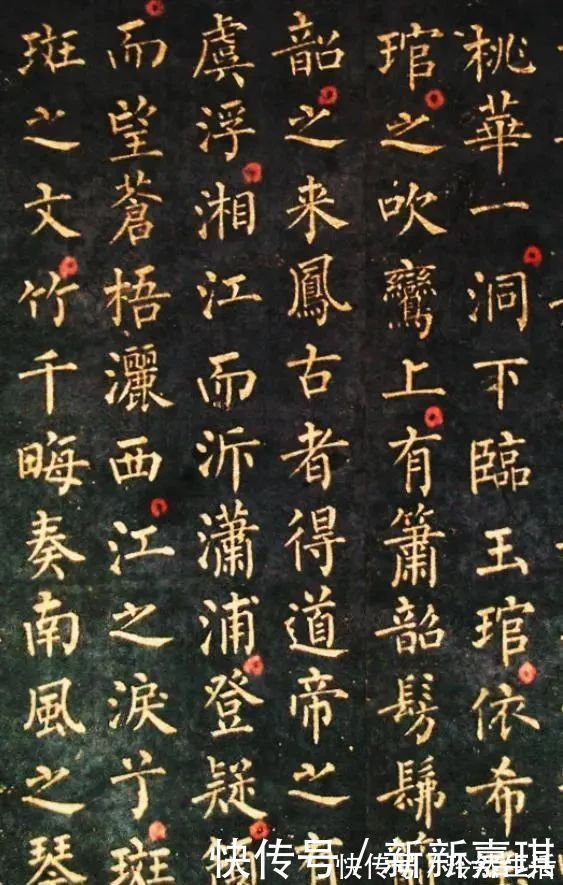 桃華一洞下臨玉琯依希
琯之吹鸞上有簫韶髣髴
韶之来鳳古者得道帝之
虞浮湘江而泝瀟浦登疑
而望蒼梧灑西江之淚兮斑
斑之文竹千晦奏南風之琴
快传号 / 新新嘉琪